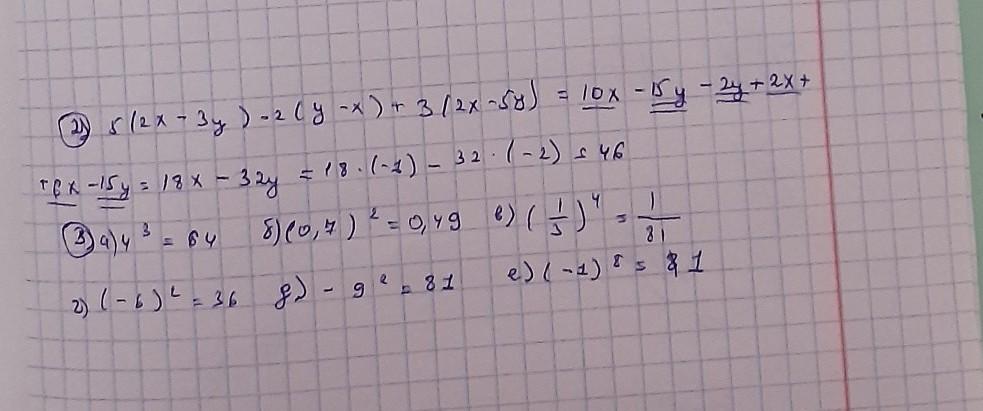 2) 5(2x - 3y) - 2(y - x) + 3(2x - 5y) = 10x - 15y - 2y + 2x +
+6x - 15y = 18x - 32y = 18 · (-1) - 32 · (-2) = 46
3) а) 4³ = 64 б) (0,7)² = 0,49 в) (1/3)⁴ = 1/81
г) (-6)² = 36 д) - 9² = 81 е) (-1)⁸ = 1